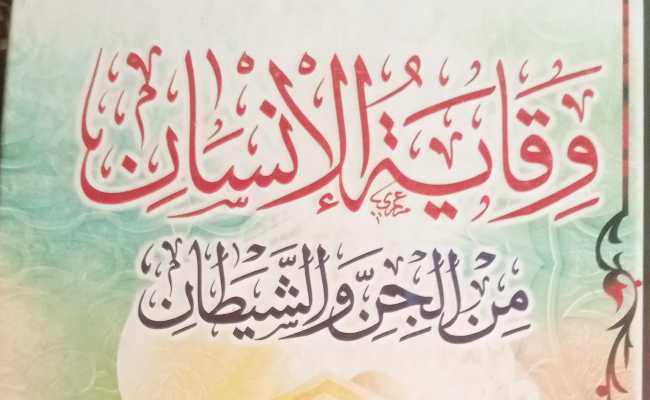 وِقَايَةُ الإِنْسَانِ
مِنَ الْجِنِّ وَالشَّيْطَانِ